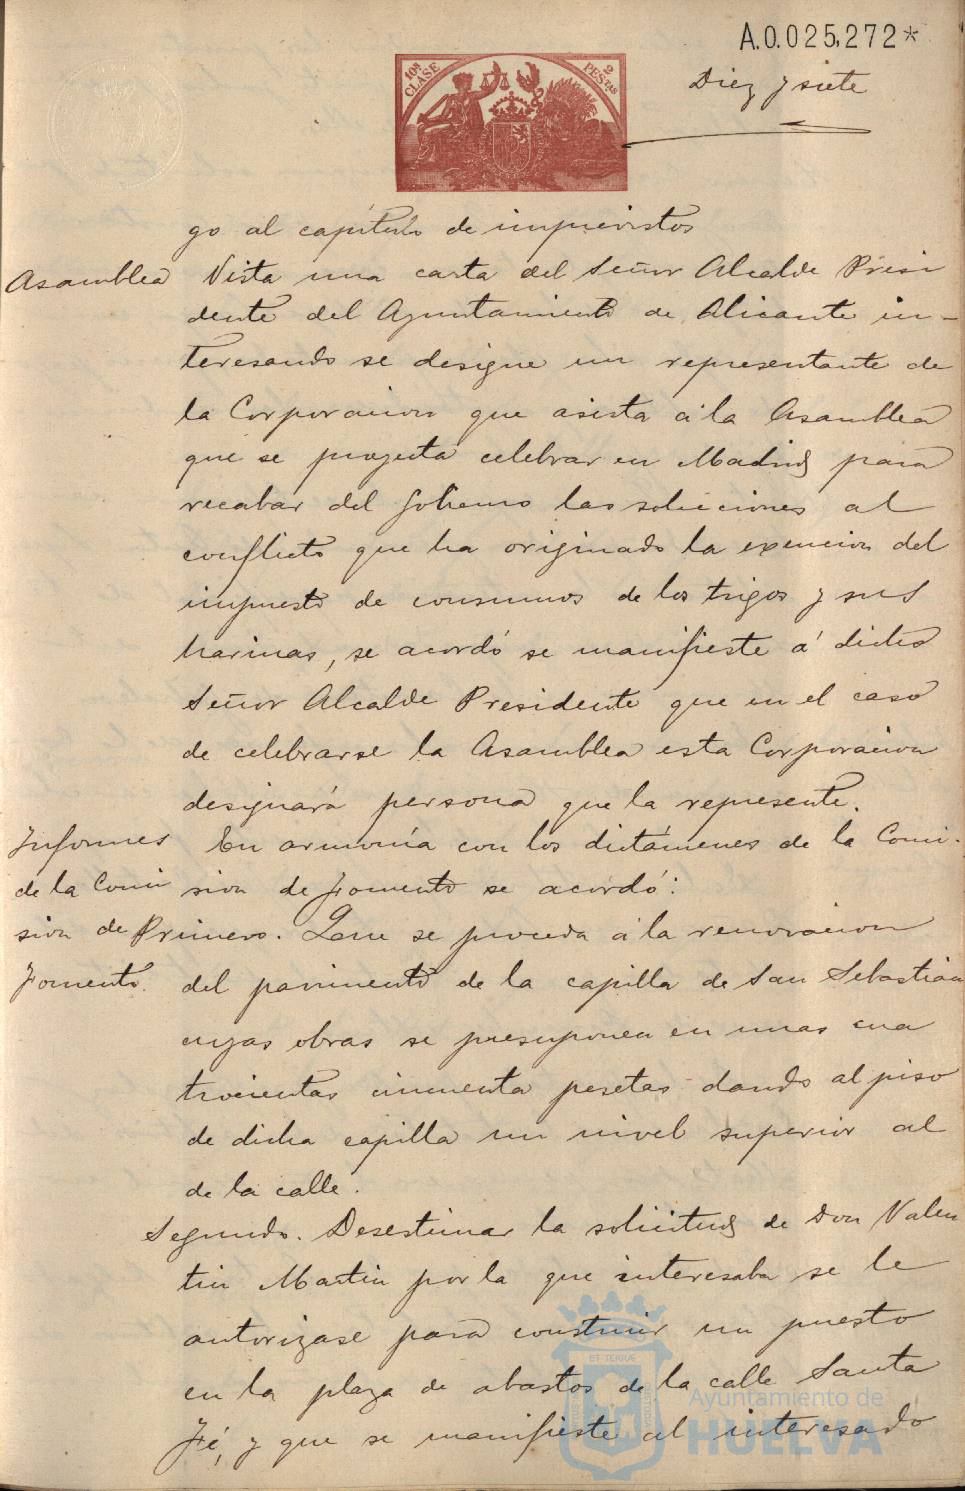 A.0.025,272*
10ª CLASE
2 PESTAS
Diez y siete
go al capítulo de imprevistos
Asamblea
Vista una carta del Señor Alcalde Presi
dente del Ayuntamiento de Alicante in-
teresando se designe un representante de
la Corporacion que asista á la Asamblea
que se proyecta celebrar en Madrid para
recabar del Gobierno las soluciones al
conflicto que ha originado la exencion del
impuesto de consumos de los trigos y sus
harinas, se acordó se manifieste á dicho
Señor Alcalde Presidente que en el caso
de celebrarse la Asamblea esta Corporacion
designará persona que la represente.
Informes
de la Comi
sion de
Fomento.
En armonía con los dictámenes de la Comi-
sion de Fomento se acordó:
Primero. Que se proceda á la renovacion
del pavimento de la capilla de San Sebastian
cuyas obras se presuponen en unas cua
trocientas cincuenta pesetas dando al piso
de dicha capilla un nivel superior al
de la calle.
Segundo. Desestimar la solicitud de Don Valen
tin Martin por la que interesaba se le
autorizase para construir un puesto
en la plaza de abastos de la calle Santa
Fé, y que se manifieste al interesado
Ayuntamiento de
HUELVA